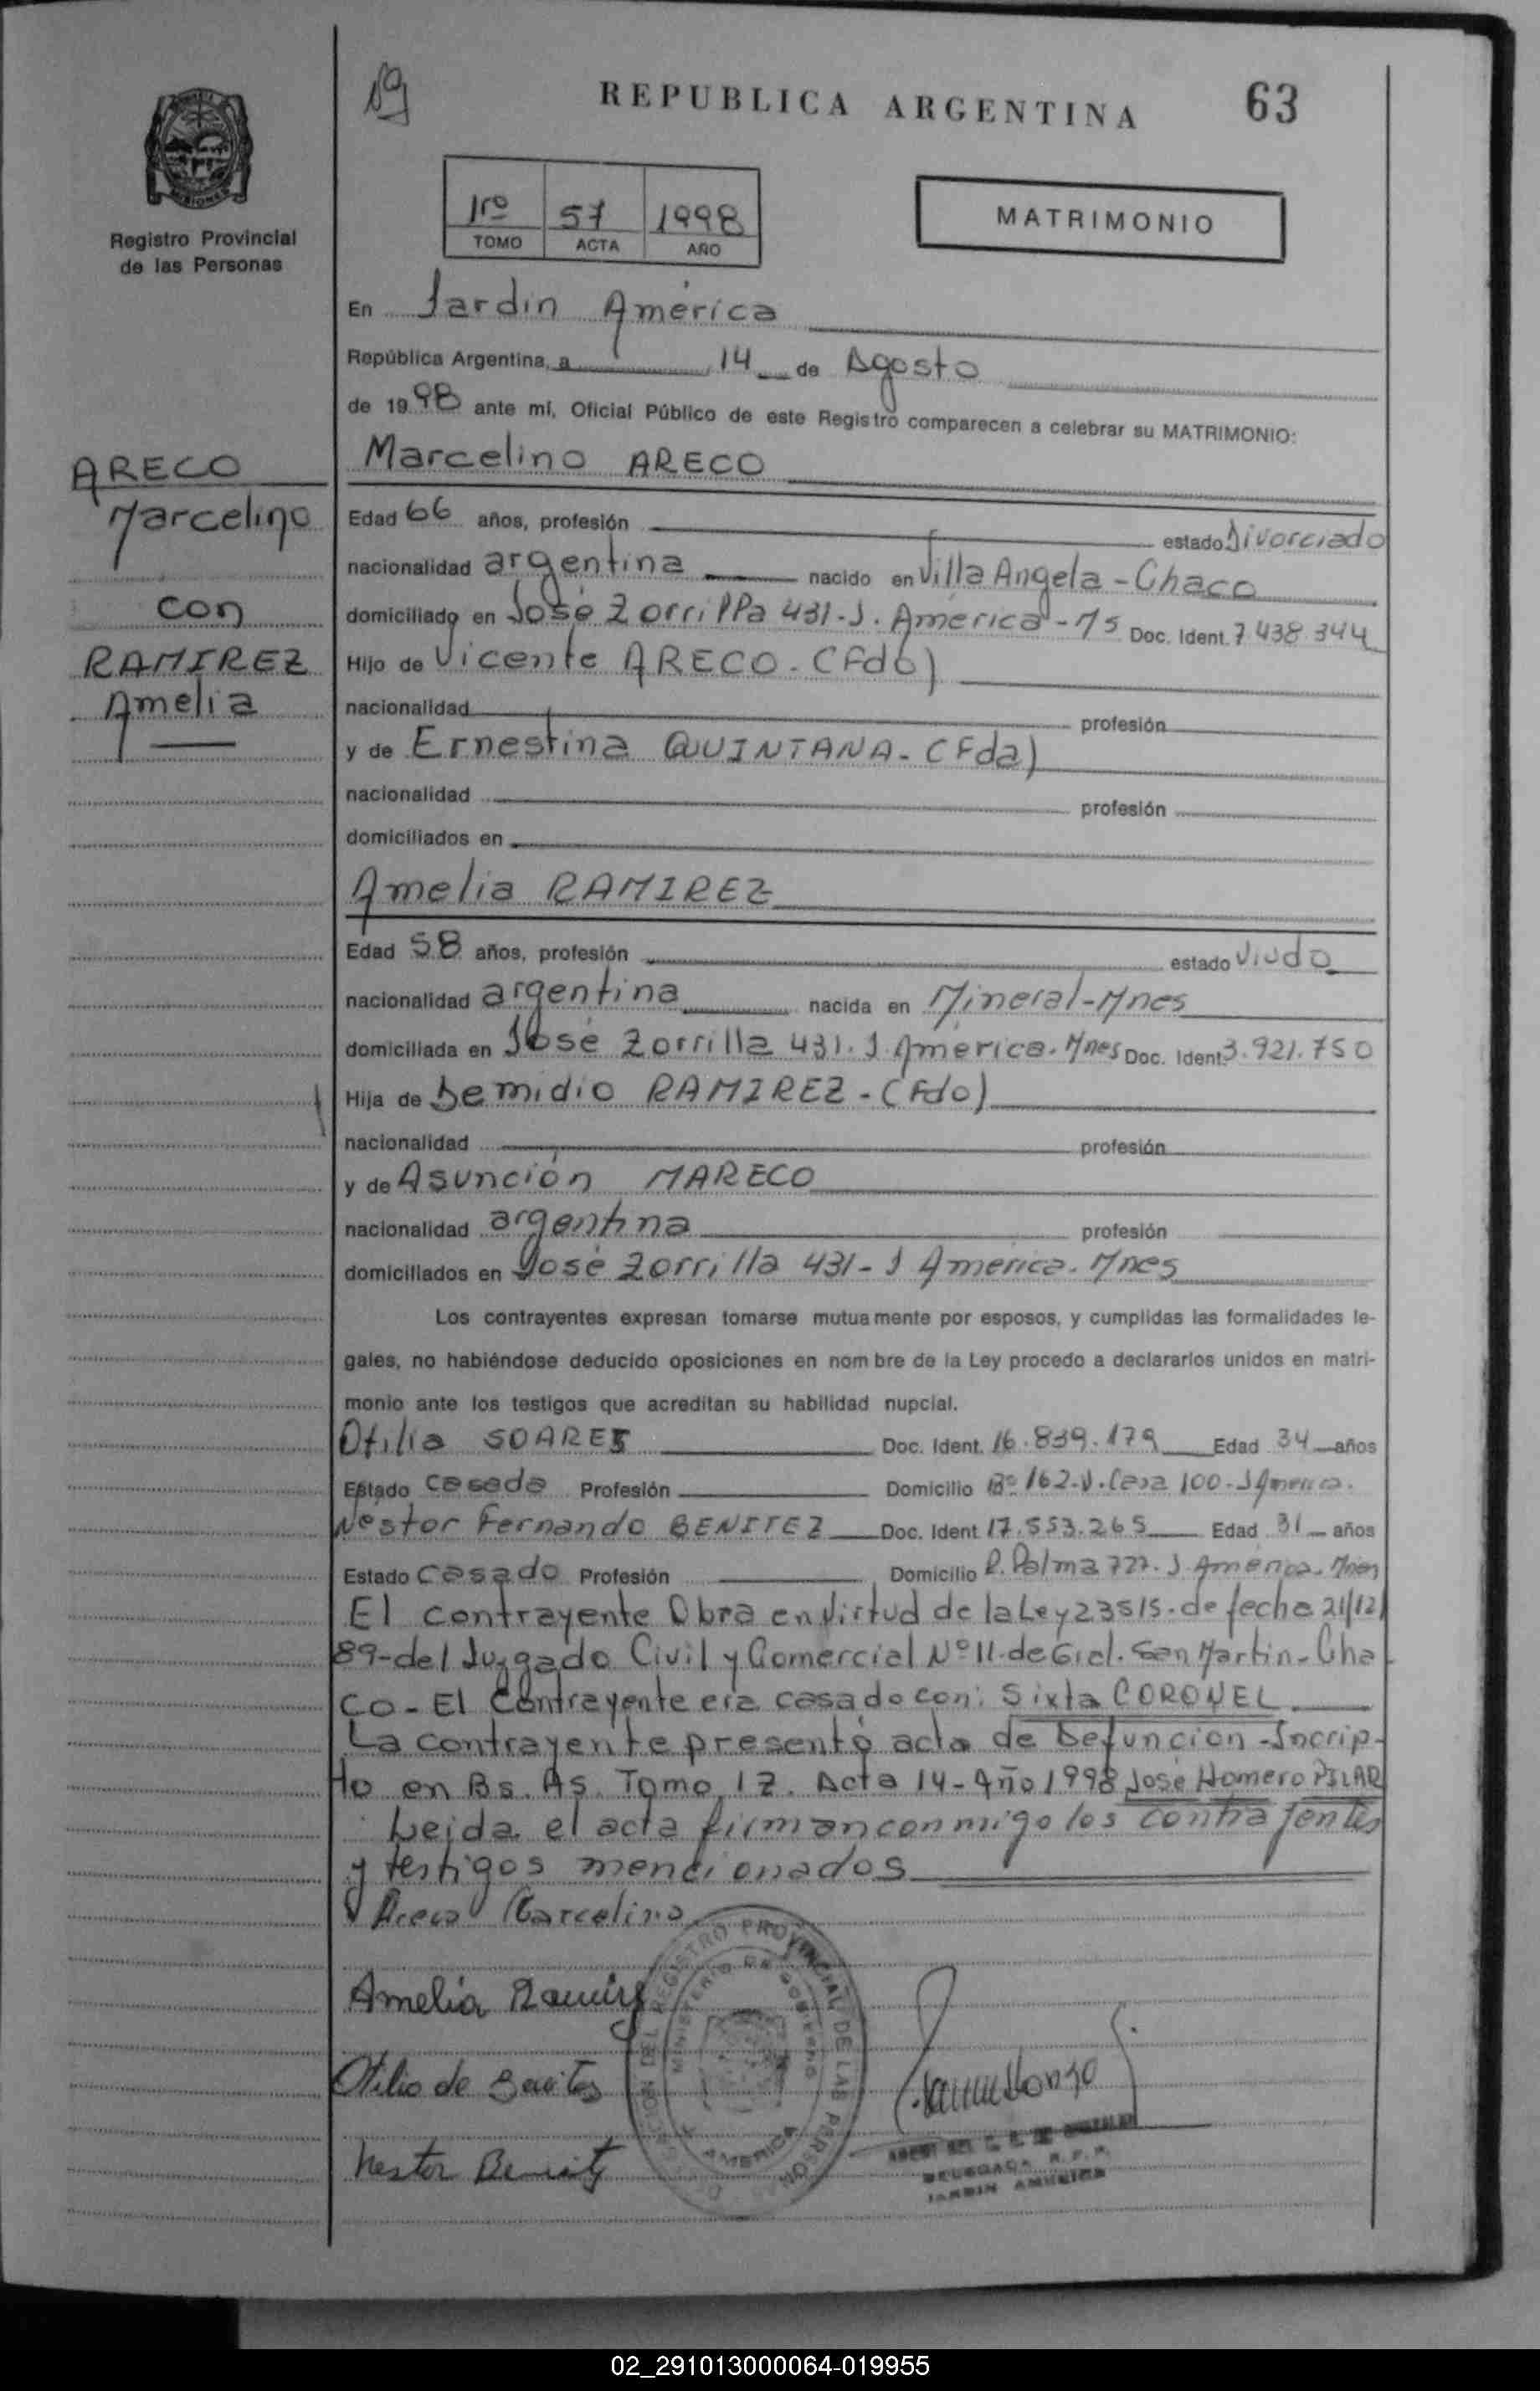 19
REPUBLICA ARGENTINA
63
Registro Provincial
de las Personas
1ro 57 1998
TOMO ACTA AÑO
MATRIMONIO
En Jardin América
República Argentina, a 14 de Agosto
de 1998 ante mí, Oficial Público de este Registro comparecen a celebrar su MATRIMONIO:
ARECO
Marcelino
con
RAMIREZ
Amelia
Marcelino ARECO
Edad 66 años, profesión estado Divorciado
nacionalidad argentina nacido en Villa Angela - Chaco
domiciliado en José Zorrilla 431 - J. América - Ms Doc. Ident. 7.438.344
Hijo de Vicente ARECO - (Fdo)
nacionalidad profesión
y de Ernestina QUINTANA - (Fda)
nacionalidad profesión
domiciliados en
Amelia RAMIREZ
Edad 58 años, profesión estado Viuda
nacionalidad argentina nacida en Mineral - Mnes
domiciliada en José Zorrilla 431. J. América. Mnes Doc. Ident. 3.921.750
Hija de Demidio RAMIREZ - (Fdo)
nacionalidad profesión
y de Asunción MARECO
nacionalidad argentina profesión
domiciliados en José Zorrilla 431 - J América. Mnes
Los contrayentes expresan tomarse mutuamente por esposos, y cumplidas las formalidades le-
gales, no habiéndose deducido oposiciones en nombre de la Ley procedo a declararlos unidos en matri-
monio ante los testigos que acreditan su habilidad nupcial.
Otilia SOARES Doc. Ident. 16.839.179 Edad 34 años
Estado Casada Profesión Domicilio Bº 162.V. Casa 100 - J America.
Nestor Fernando BENITEZ Doc. Ident 17.553.265 Edad 31 años
Estado Casado Profesión Domicilio R. Palma 727. J. América. Mnes
El contrayente Obra en Virtud de la Ley 23515. de fecha 21/12/
89 - del Juzgado Civil y Comercial Nº 11. de Gral. San Martin - Cha
co - El Contrayente era casado con: Sixta CORONEL
La contrayente presentó acta de Defunción - Incrip-
to en Bs. As. Tomo 1Z. Acta 14 - Año 1998 Jose Homero PILAR
Leida el acta firman conmigo los contrayentes
y testigos mencionados
Areco Marcelino
Amelia Ramirez
Otilia de Benitez
Nestor Benitez
REGISTRO PROVINCIAL DE LAS PERSONAS
MINISTERIO DE GOBIERNO
AMERICA
DELEGADA R.P.P.
JARDIN AMERICA
02_291013000064-019955